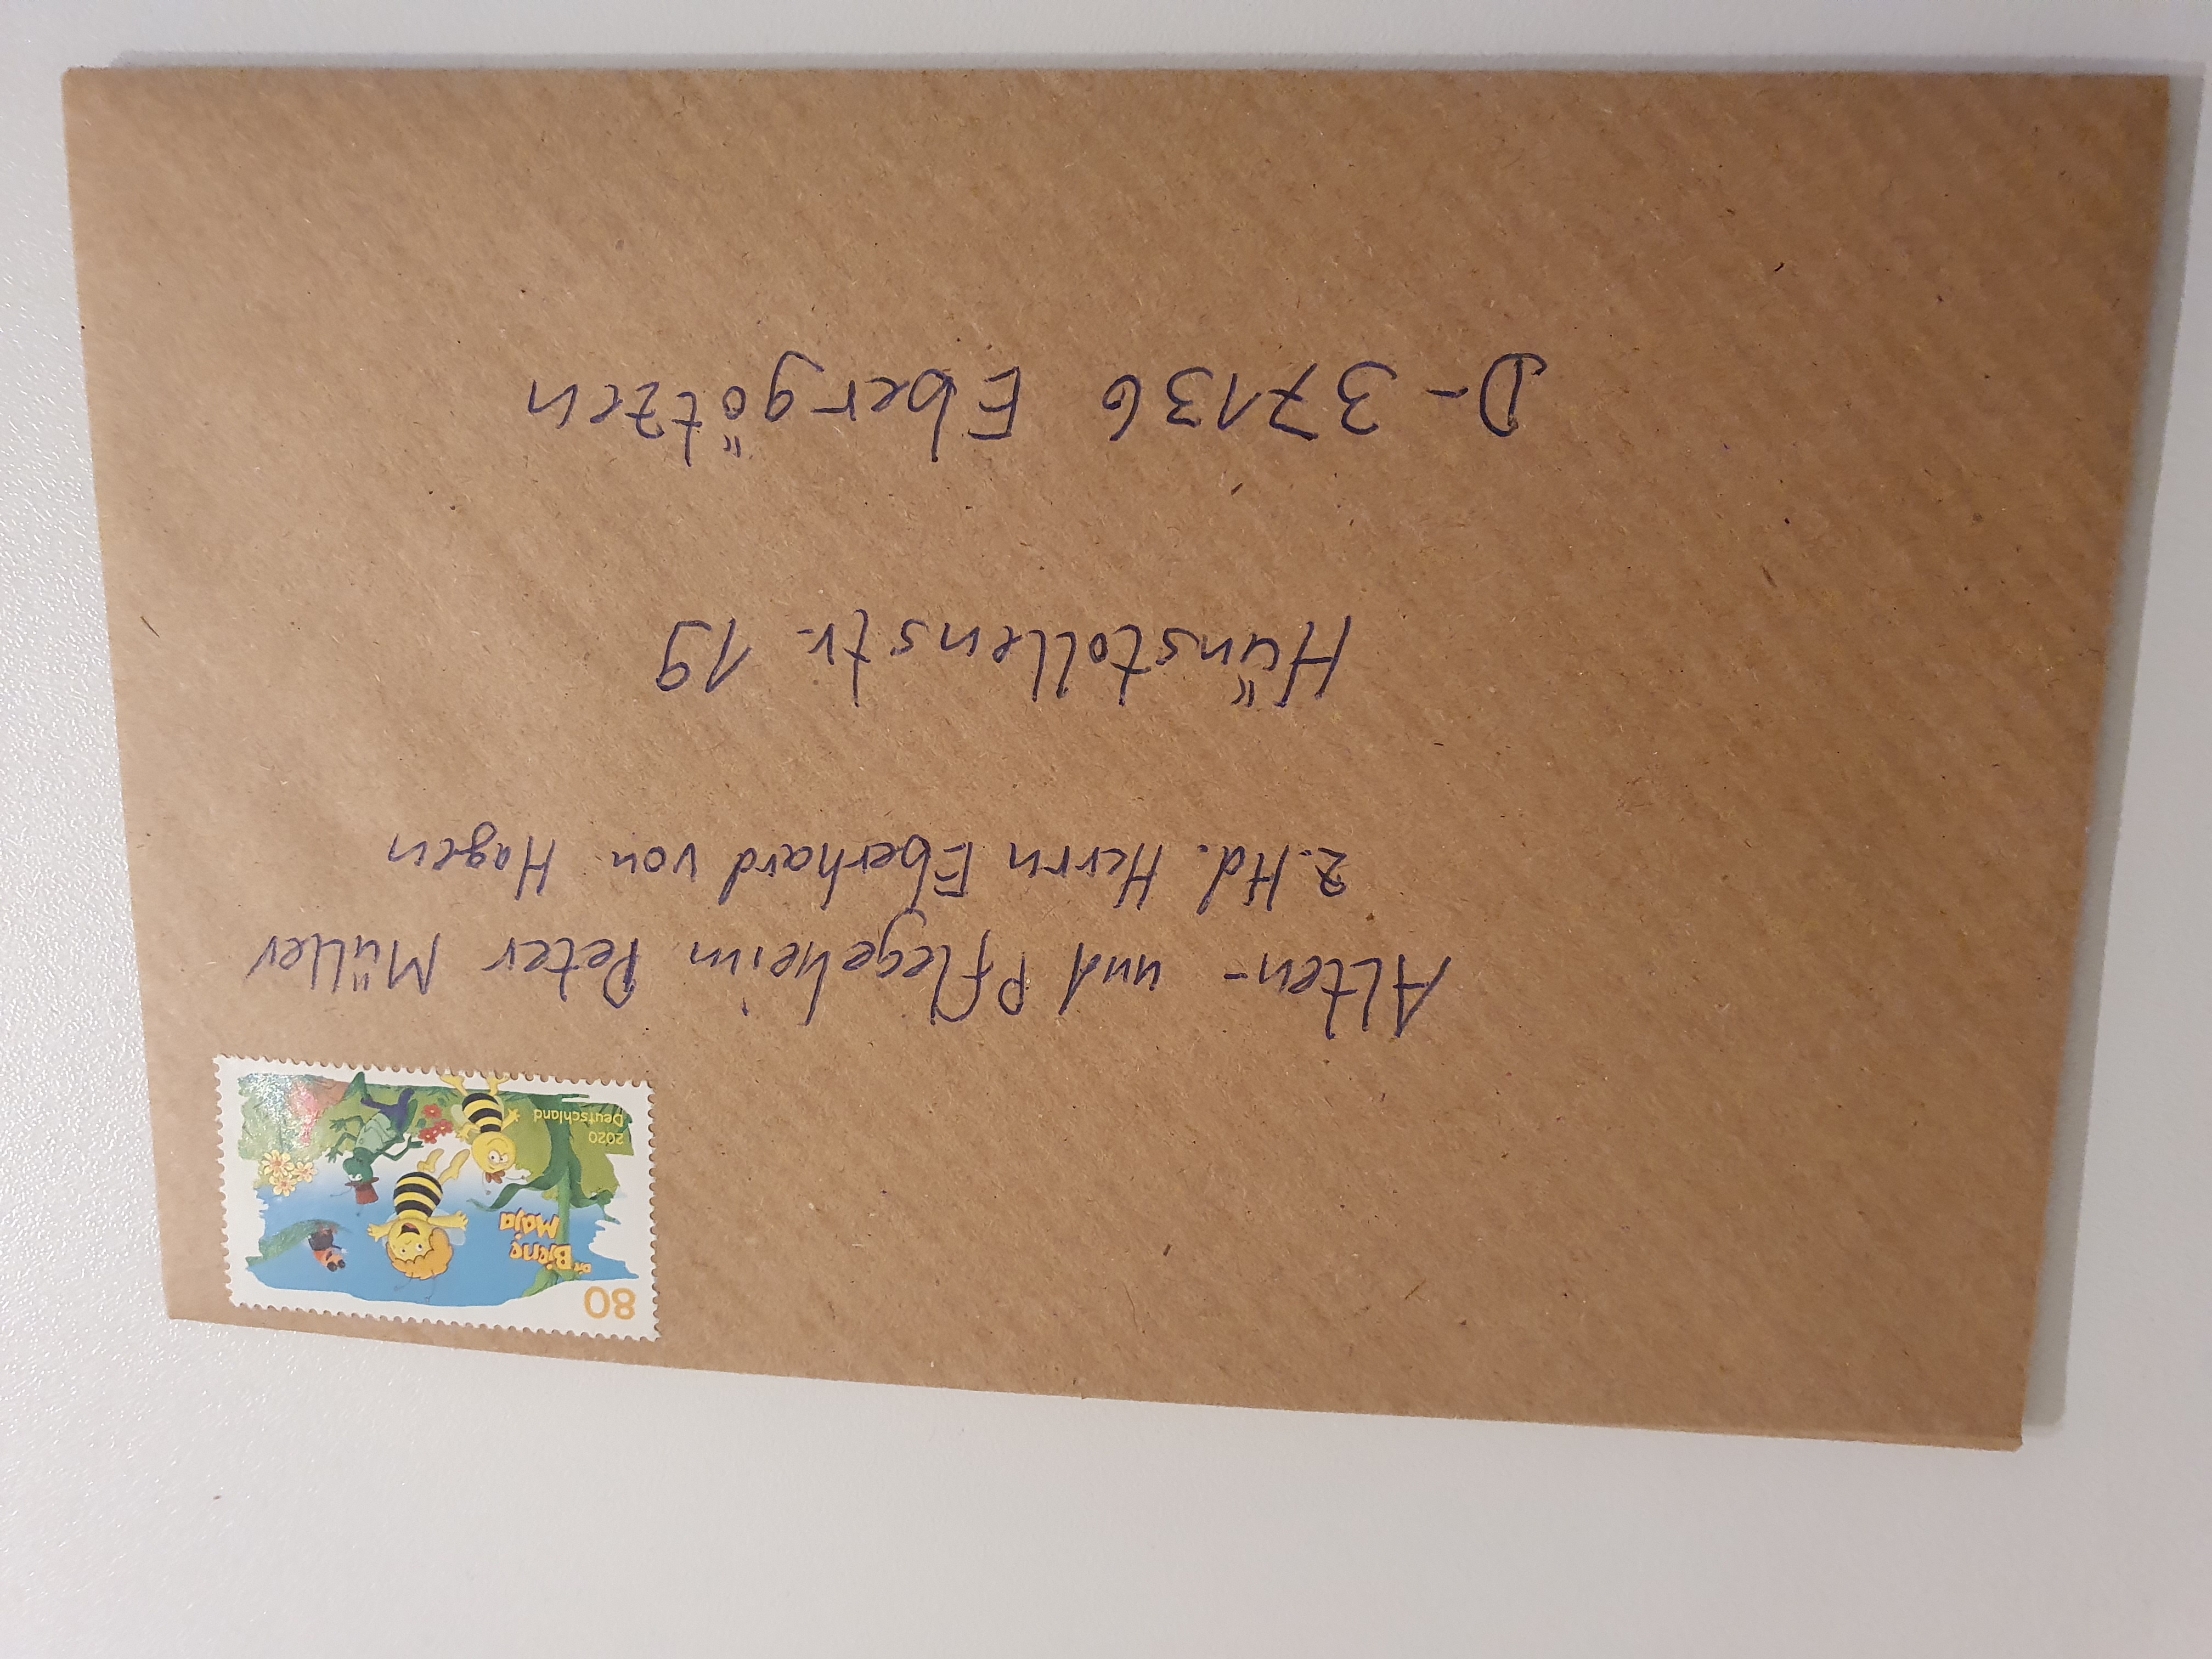 80
Die
Biene
Maja
2020
Deutschland
Alten- und Pflegeheim Peter Müller
z.Hd. Herrn Eberhard von Hagen
Hünstollenstr. 19
D-37136 Ebergötzen